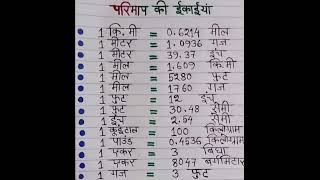 परिमाप की ईकाईयां
1 कि.मी = 0.6214 मील
1 मीटर = 1.0936 गज
1 मीटर = 39.37 इंच
1 मील = 1.609 कि.मी
1 मील = 5280 फुट
1 मील = 1760 गज
1 फुट = 12 इंच
1 फुट = 30.48 सेमी
1 इंच = 2.54 सेमी
1 कुइंटल = 100 किलोग्राम
1 पाउंड = 0.4536 किलोग्राम
1 एकर = 3 बिघा
1 एकर = 8047 बर्गमिटार
1 गज = 3 फुट